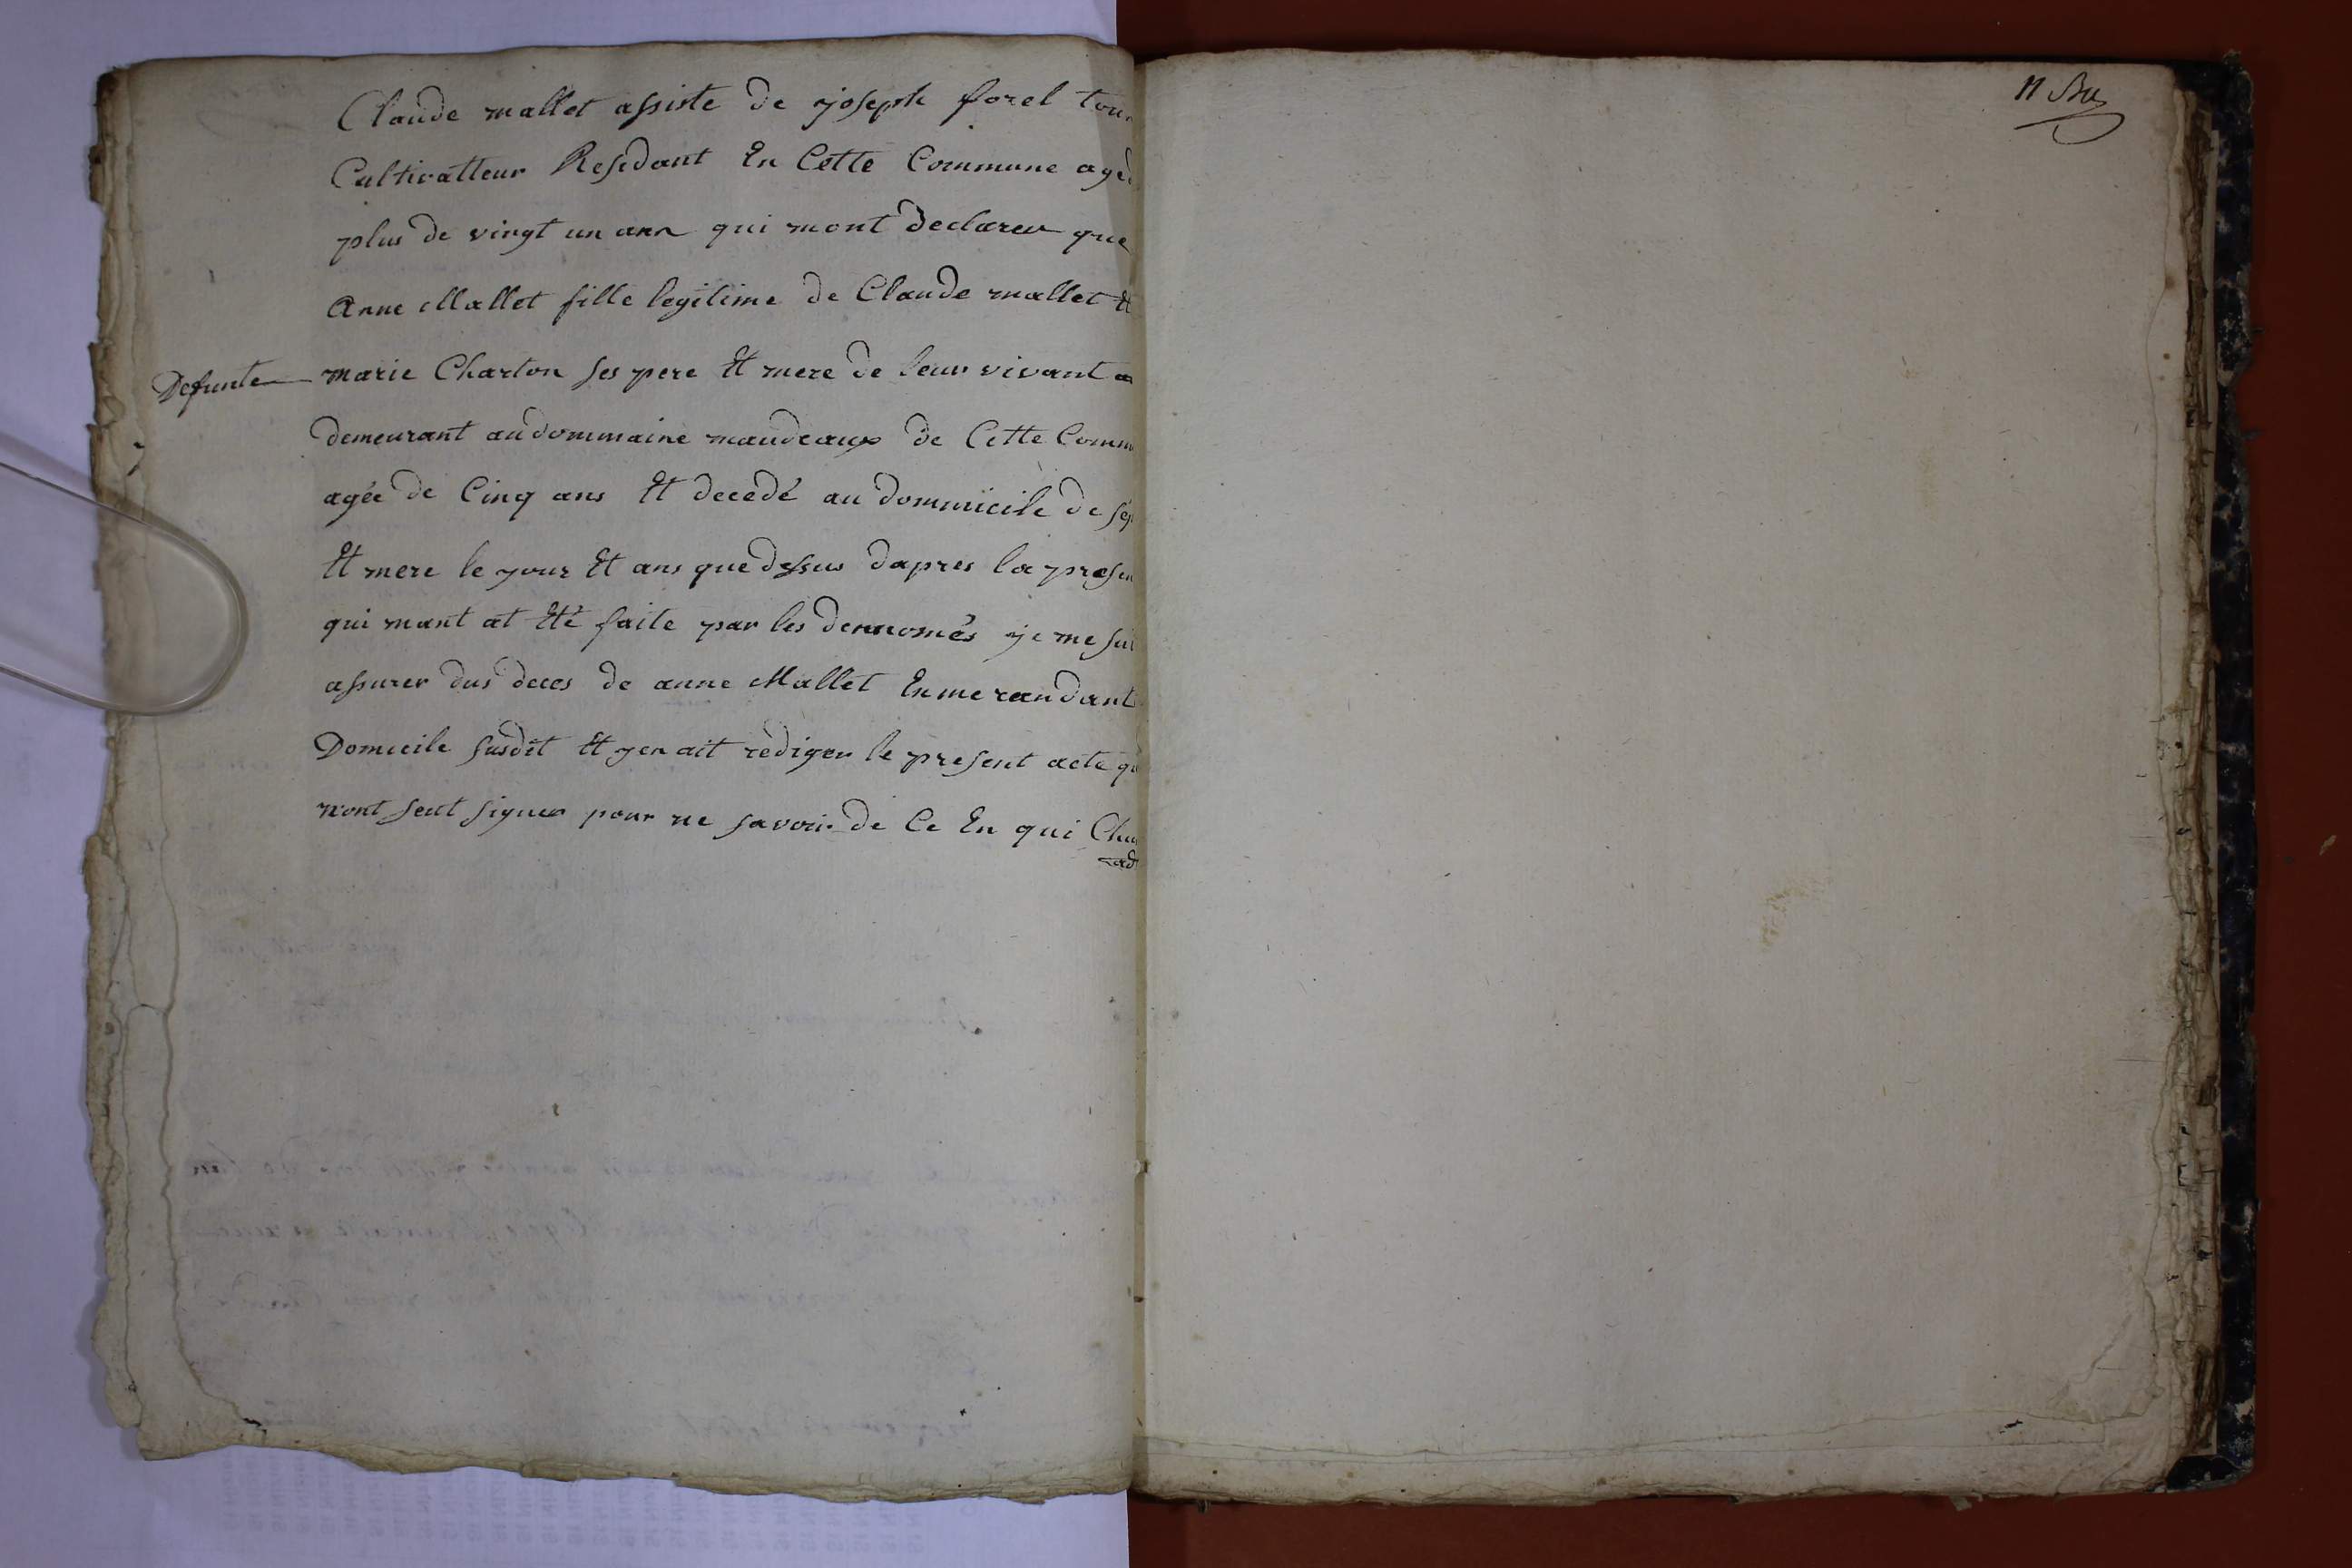 Claude mallet assiste de joseph forel tou
Cultivatteur Residant En Cette Commune agé d
plus de vingt un ans qui mont declarer que
Anne Mallet fille legitime de Claude mallet Et
Defunte marie Charton ses pere Et mere de leur vivant
demeurant au dommaine maudeaux de Cette Comm
agée de Cinq ans Et decedé au dommicile de se
Et mere le jour Et ans que dessus dapres la presen
qui mont at Eté faite par les denomés je me sui
assurer dus deces de anne Mallet En me randant
Domicile susdit Et jen ait rediger le present acte qu
n'ont seut signer pour ne savoir de Ce En qui
11